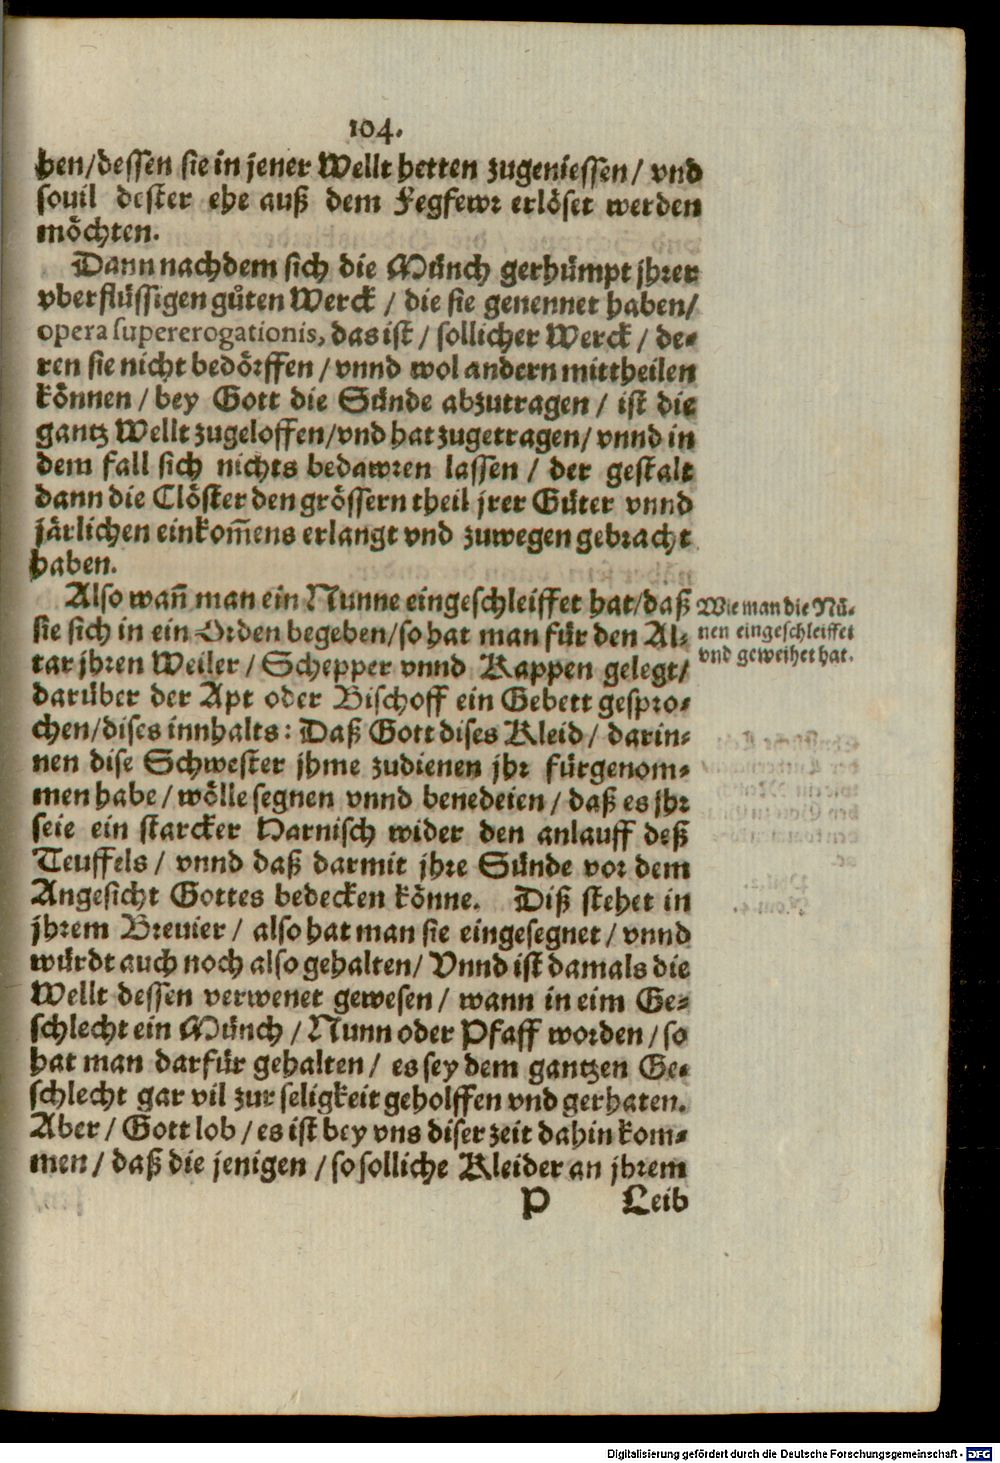 104.
hen/dessen sie in jener Wellt hetten zugeniessen/ vnd
souil dester ehe auß dem Fegfewr erlöset werden
möchten.
Dann nachdem sich die Münch gerhümpt jhrer
vberflüssigen gůten Werck / die sie genennet haben/
opera supererogationis, das ist / sollicher Werck / de-
ren sie nicht bedörffen / vnnd wol andern mittheilen
können / bey Gott die Sünde abzutragen / ist die
gantz Wellt zugeloffen/vnd hat zugetragen/ vnnd in
dem fall sich nichts bedawren lassen / der gestalt
dann die Clöster den grössern theil jrer Güter vnnd
järlichen einkom̃ens erlangt vnd zuwegen gebracht
haben.
Also wañ man ein Nunne eingeschleiffet hat/daß
sie sich in ein Orden begeben/so hat man für den Al-
tar jhren Weiler / Schepper vnnd Kappen gelegt/
darüber der Apt oder Bischoff ein Gebett gespro-
chen/dises innhalts: Daß Gott dises Kleid / darin-
nen dise Schwester jhme zudienen jhr fürgenom-
men habe / wölle segnen vnnd benedeien / daß es jhr
seie ein starcker Harnisch wider den anlauff deß
Teuffels / vnnd daß darmit jhre Sünde vor dem
Angesicht Gottes bedecken könne. Diß stehet in
jhrem Breuier / also hat man sie eingesegnet / vnnd
würdt auch noch also gehalten/ Vnnd ist damals die
Wellt dessen verwenet gewesen / wann in eim Ge-
schlecht ein Münch / Nunn oder Pfaff worden / so
hat man darfür gehalten / es sey dem gantzen Ge-
schlecht gar vil zur seligkeit geholffen vnd gerhaten.
Aber / Gott lob / es ist bey vns diser zeit dahin kom-
men / daß die jenigen / so solliche Kleider an jhrem
P Leib
Wie man die Nü-
nen eingeschleiffet
vnd geweihet hat.
Digitalisierung gefördert durch die Deutsche Forschungsgemeinschaft - DFG